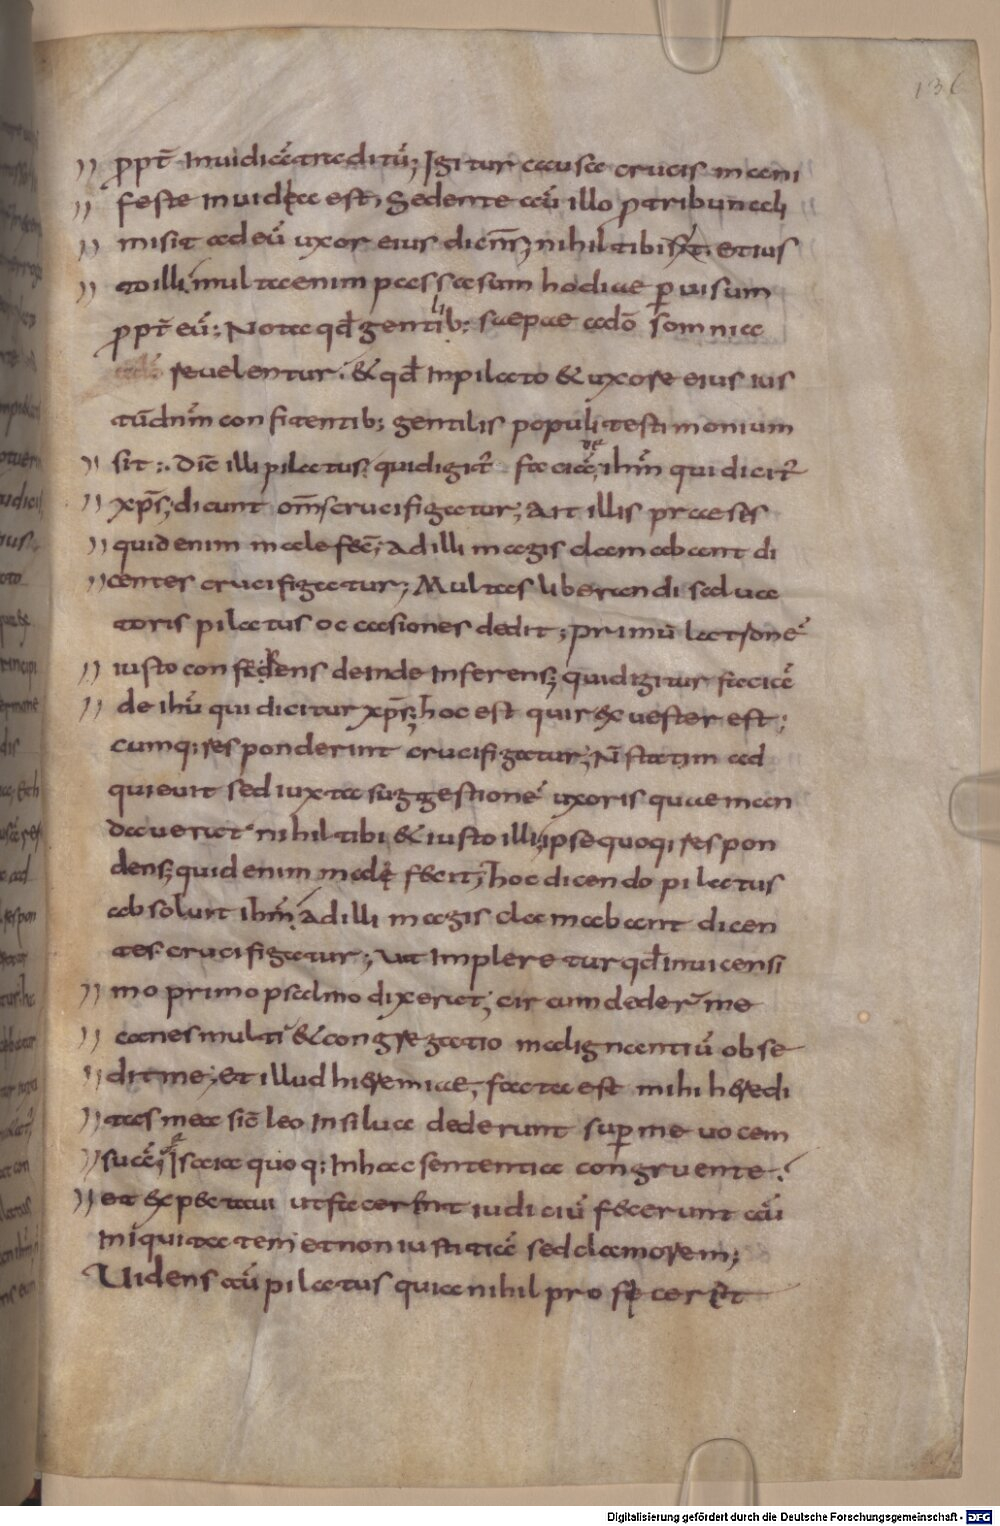 136
ꝓpt̄ Inuidiā traditū; Igitur causa crucis mani
feste Inuidię est; Sedente aū illo ꝓ tribunali
misit ad eū uxor eius diceñs; nihil tibi sit et ius
to illi; multa enim passa sum hodiae ꝑ uisum
ꝓpt̄ eū; Nota qd̄ gentilib; saepae a dō somnia
reuelentur. & qd̄ Inpilato & uxore eius ius
tū dn̄m confitentib; gentilis populi testimonium
sit; Dic̄ illi pilatus; quid igit̄ faciā de ihm̄ qui dicit̄
xp̄s; dicunt om̄s crucifigatur; Ait illis praeses
quid enim male fec̄; Ad illi magis clamabant di
centes crucifigatur; Multas liberandi salua
toris pilatus occasiones dedit; primū latronē
iusto conferens deinde Inferens; quid igitur faciā
de ihū qui dicitur xp̄s; hoc est qui rex uester est;
cumq; responderint crucifigatur; N̄ statim ad
quieuit sed iuxta suggestionē uxoris quae man
dauerat nihil tibi & iusto illi; ipse quoq; respon
dens; quid enim malę fecit; hoc dicendo pilatus
absoluit ihm̄; Ad illi magis clamabant dicen
tes crucifigatur; Ut Impleretur qd̄ In uicensi
mo primo psalmo dixerat; circumdeder̄ me
canes multi & congregatio malignantiū obse
dit me; et illud hieremiae, facta est mihi heredi
tas mea sic̄ leo In silua dederunt suꝑ me uocem
suā; Isaia quoq; In hac sententia congruente.
et expectaui ut facerent iudiciū fecerunt aū
Iniquitatem et non iustitiā sed clamorem;
Uidens aū pilatus quia nihil proficeret
Digitalisierung gefördert durch die Deutsche Forschungsgemeinschaft - DFG